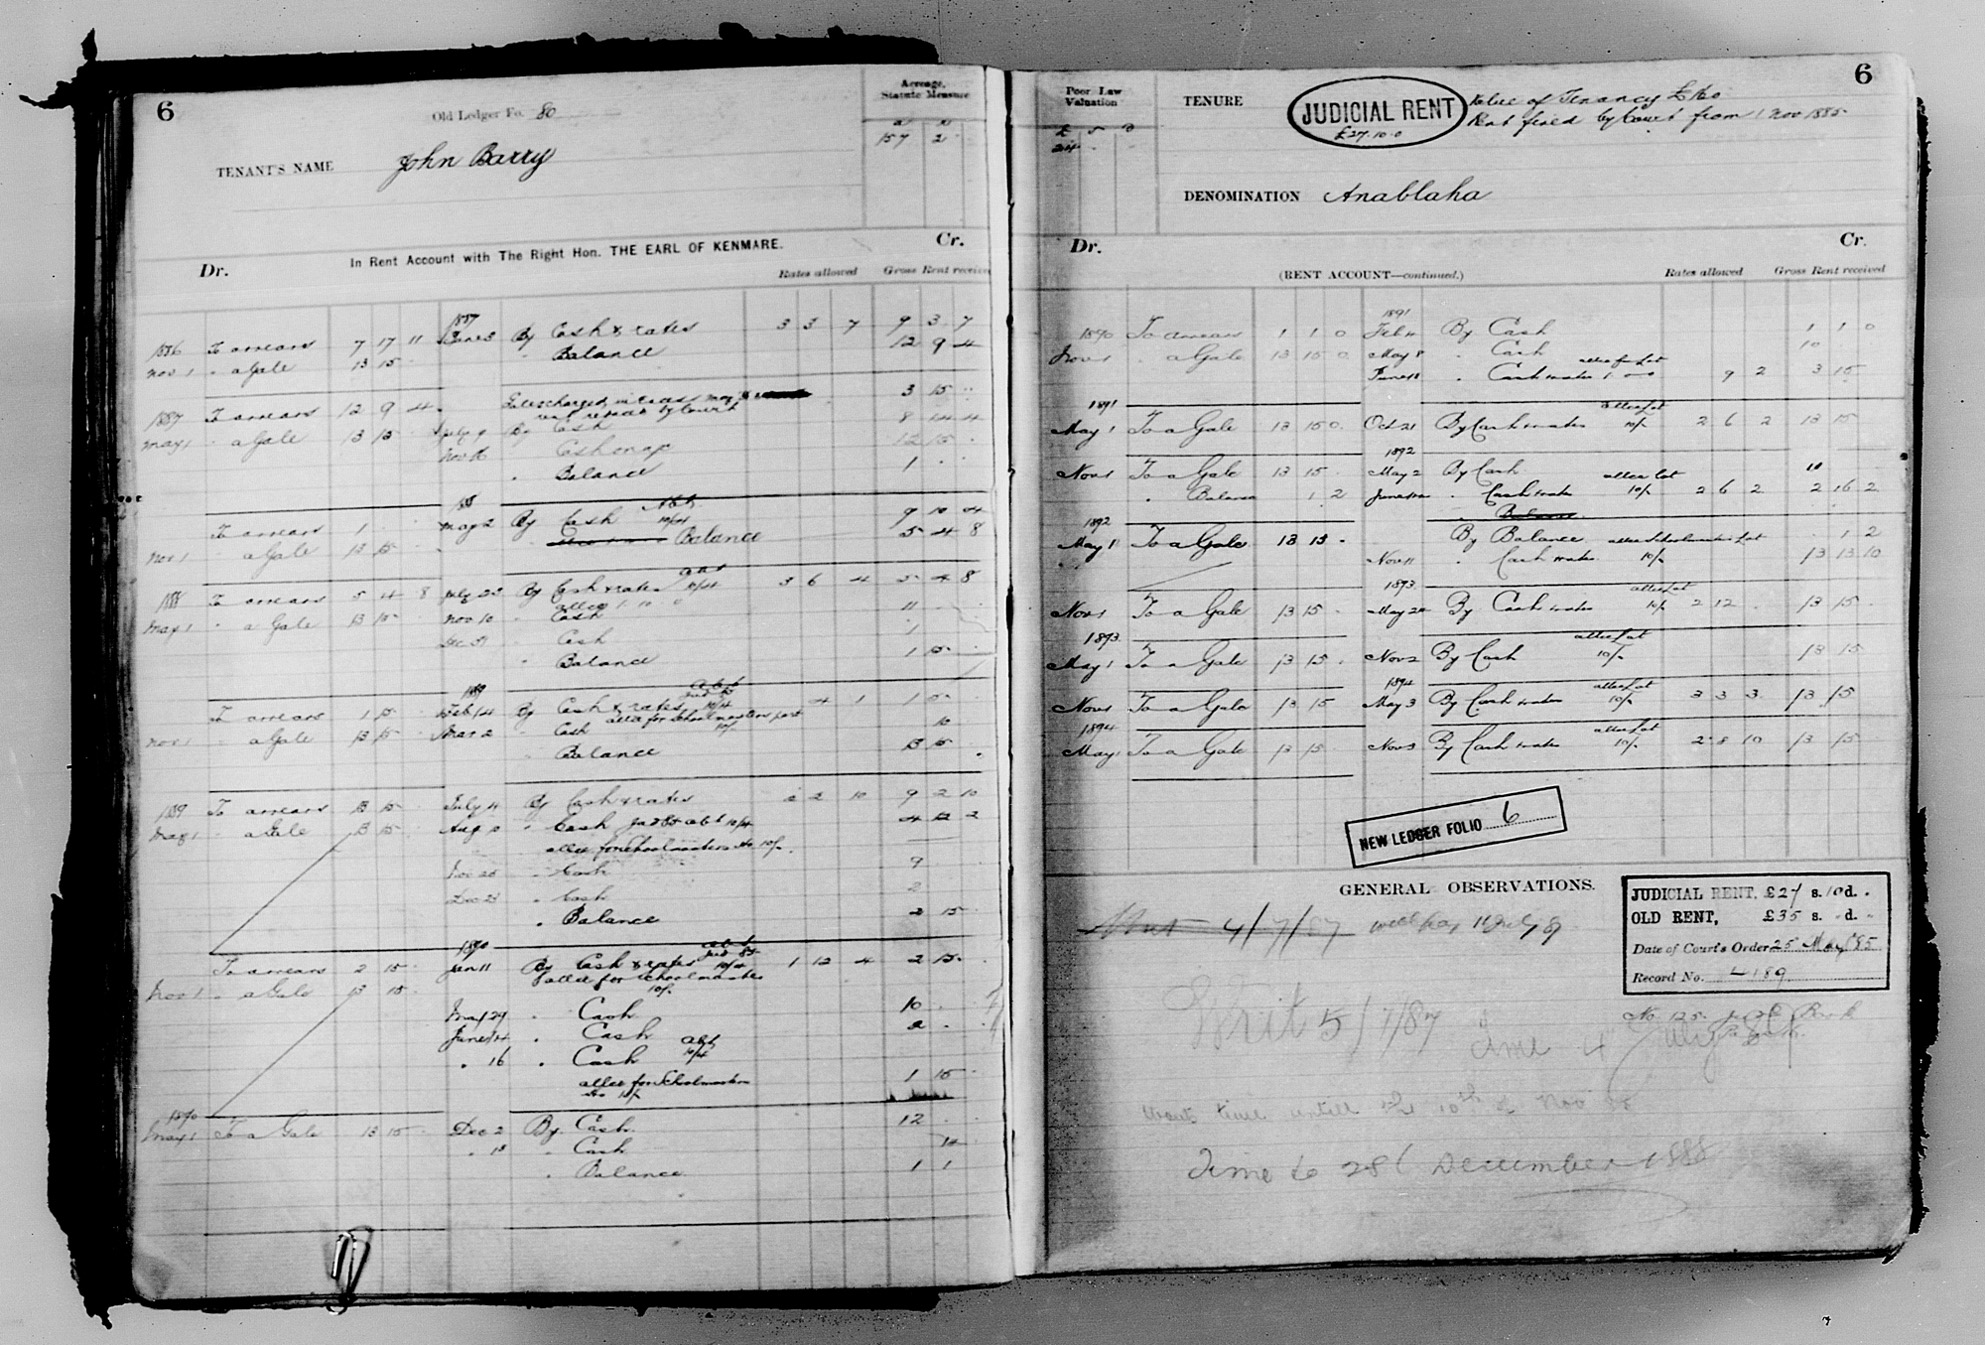 6
Old Ledger Fo. 80
Acreage, Statute Measure
a r
157 2
TENANT'S NAME John Barry
In Rent Account with The Right Hon. THE EARL OF KENMARE.
Dr. Cr.
Rates allowed Gross Rent receiv
1887
1886 To arrears 7 17 11 June 3 By Cash & rates 3 3 7 9 3 7
Nov 1 " a Gale 13 15 " Balance 12 9 4
3 15
1887 To arrears 12 9 4
rent refixed by Court
May 1 " a Gale 13 15 July 9 By Cash 8 14 4
Nov 16 Cash 12 15
" Balance 1
188
To arrears 1 May 2 By Cash 10/4 9 10 4
Nov 1 a Gale 13 15 Balance 5 4 8
188 To arrears 5 4 8 July 23 By Cash & rates 10/4 3 6 4 5 4 8
allce 1.10.0
May 1 " a Gale 13 15 Nov 10 " Cash 11
Dec 31 " Cash 1
" Balance 1 15
189
To arrears 1 15 Feb 14 By Cash & rates 10/4 4 1 1 15
allce for schoolmasters
Nov 1 a Gale 13 15 Mar 2 " Cash 10/- 10
" Balance 13 15
1889 To arrears 13 15 July 4 By Cash & rates 2 2 10 9 2 10
May 1 " a Gale 13 15 Aug " Cash abt 10/4 4 12 2
allce for Schoolmasters 10/-
Nov 25 " Cash 9
Dec 21 " Cash 2
" Balance 2 15
1890
To arrears 2 15 Jan 11 By Cash & rates 10/4 1 12 4 2 15
allce for Schoolmaster
10/-
Nov 1 " a Gale 13 15
May 29 " Cash 10
June 14 " Cash 2
" 16 " Cash abt 10/4
allce for Schoolmaster 1 15
1890
May 1 To a Gale 13 15 Dec 2 By Cash 12
" 13 " Cash 14
" Balance 1 1
6
Poor Law Valuation
£ s d
24
TENURE
JUDICIAL RENT
£27.10.0
Value of Tenancy
Rent fixed by Court from 1 Nov 1885
DENOMINATION Anablaha
Dr. Cr.
(RENT ACCOUNT—continued.)
Rates allowed Gross Rent received
1891
1890 To arrears 1 1 0 Feb 4 By Cash 1 1 0
Nov 1 " a Gale 13 15 0 May 8 " Cash 10
June 12 " Cash & rates 9 2 3 15
1891
May 1 To a Gale 13 15 0 Oct 21 By Cash & rates 10/- 2 6 2 13 15
1892
Nov 1 To a Gale 13 15 May 2 By Cash 10
" Balance 1 2 June " Cash & rates 10/- 2 6 2 2 16 2
Balance
1892
May 1 To a Gale 13 15 By Balance 1 2
Nov 11 " Cash & rates 10/- 13 13 10
1893
Nov 1 To a Gale 13 15 May 24 By Cash & rates 10/- 2 12 13 15
1893
May 1 To a Gale 13 15 Nov 2 By Cash 10/- 13 15
1894
Nov 1 To a Gale 13 15 May 3 By Cash & rates 10/- 3 3 3 13 15
1894
May 1 To a Gale 13 15 Nov 3 By Cash & rates 10/- 2 8 10 13 15
NEW LEDGER FOLIO 6
GENERAL OBSERVATIONS.
4/7/87 will pay July 9
JUDICIAL RENT, £27 s. 10 d.
OLD RENT, £35 s. d.
Date of Court's Order 25 May 85
Record No. 4189
No 125
Writ 5/7/87 time 4 July
Wants time until the 10th of Nov 88
Time to 28t December 1888